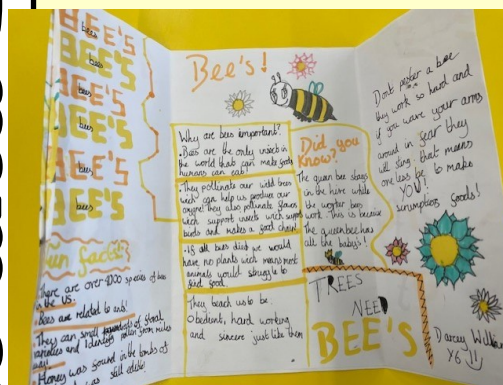 BEE'S
bees
BEE'S
bees
BEE'S
bees
BEE'S
bees
BEE'S
bees
BEE'S
fun facts!
There are over 4000 species of bees
in the US.
Bees are related to ants!
They can smell
varieties and Identify pollen from miles
away!
Honey was found in the tombs of
still edible!
Bee's!
Why are bees important?
Bees are the only insects in
the world that can make foods
humans can eat!
They pollenate our wild trees
wich can help us produce our
oxygen! They also pollenate flowers
wich support insects wich support
birds and makes a food chain!
if all bees died we would
have no plants wich means most
animals would struggle to
find food.
They teach us to be
Obedient, hard working
and sincere just like them
Did you
Know?
The queen bee stays
in the hive while
the worker bees
work. This is because
the queen bee has
all the baby's!
TREES
NEED
BEE'S
Dont pester a bee
they work so hard and
if you wave your arms
around in fear they
will sting that means
one less bee to make
YOU!
sumptious foods!
Darcey
Y6